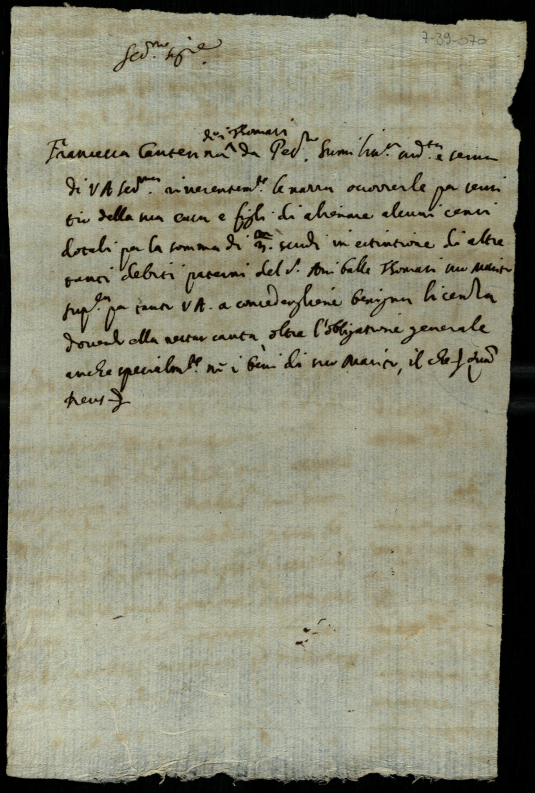 7-39-070
Ser.mo sig.re
dei Thomasi
Francesca da Ped. humiliss.a e serva
di V A Ser.ma riverentem.te le narra occorrerle per servi
tio della sua casa e figli di alienare alcuni censi
dotali per la somma di scudi in estintione di altre
tanti debiti paterni del S. Anibale Thomasi suo Marito
sup.do per tanto V A. a concederghiene benigna licenza
dovendo ella restar cauta, oltre l'obligatione generale
anche specialm.te i beni di suo Marito, il che
Deus